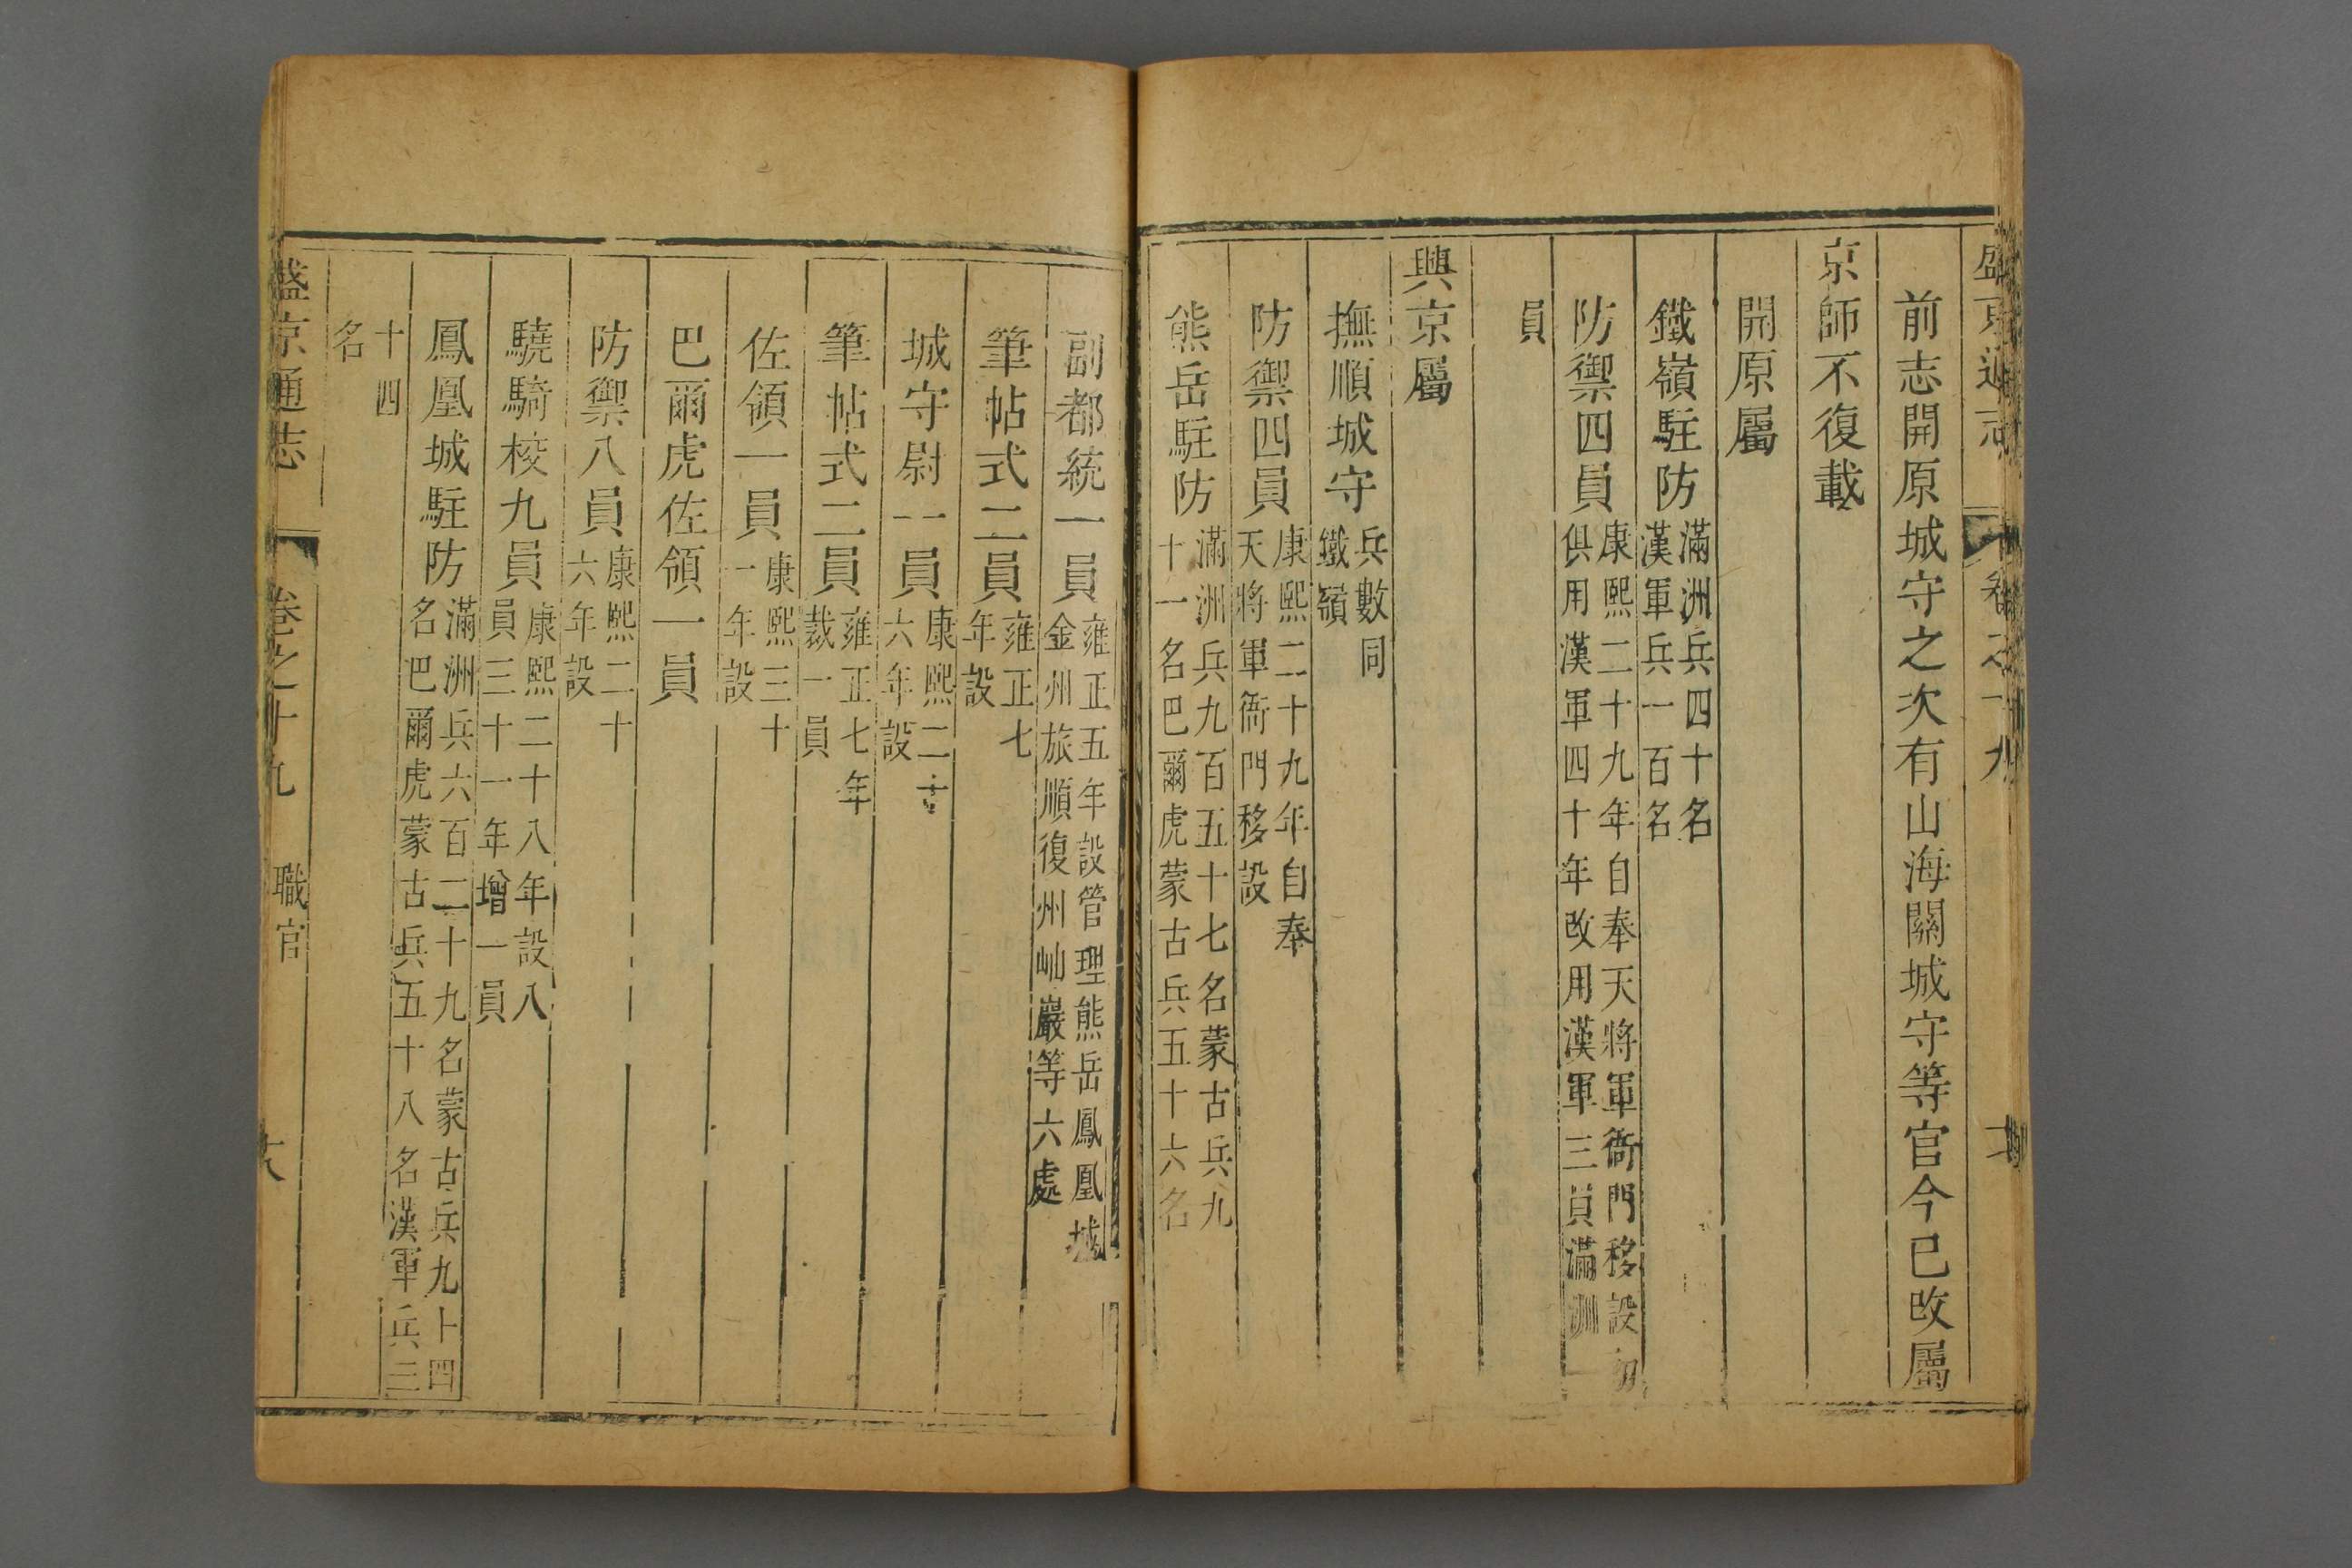 盛京通志 卷之十九
前志開原城守之次有山海關城守等官今已改屬
京師不復載
開原屬
鐵嶺駐防滿洲兵四十名
漢軍兵一百名
防禦四員康熙二十九年自奉天將軍衙門移設初
俱用漢軍四十年改用漢軍三員滿洲一
員
興京屬
撫順城守兵數同
鐵嶺
防禦四員康熙二十九年自奉
天將軍衙門移設
熊岳駐防滿洲兵九百五十七名蒙古兵九
十一名巴爾虎蒙古兵五十六名
副都統一員雍正五年設管理熊岳鳳凰城
金州旅順復州岫巖等六處
筆帖式二員雍正七
年設
城守尉一員康熙二十
六年設
筆帖式二員雍正七年
裁一員
佐領一員康熙三十
一年設
巴爾虎佐領一員
防禦八員康熙二十
六年設
驍騎校九員康熙二十八年設八
員三十一年增一員
鳳凰城駐防滿洲兵六百二十九名蒙古兵九十四
名巴爾虎蒙古兵五十八名漢軍兵三
十四
名
盛京通志 卷之十九 職官